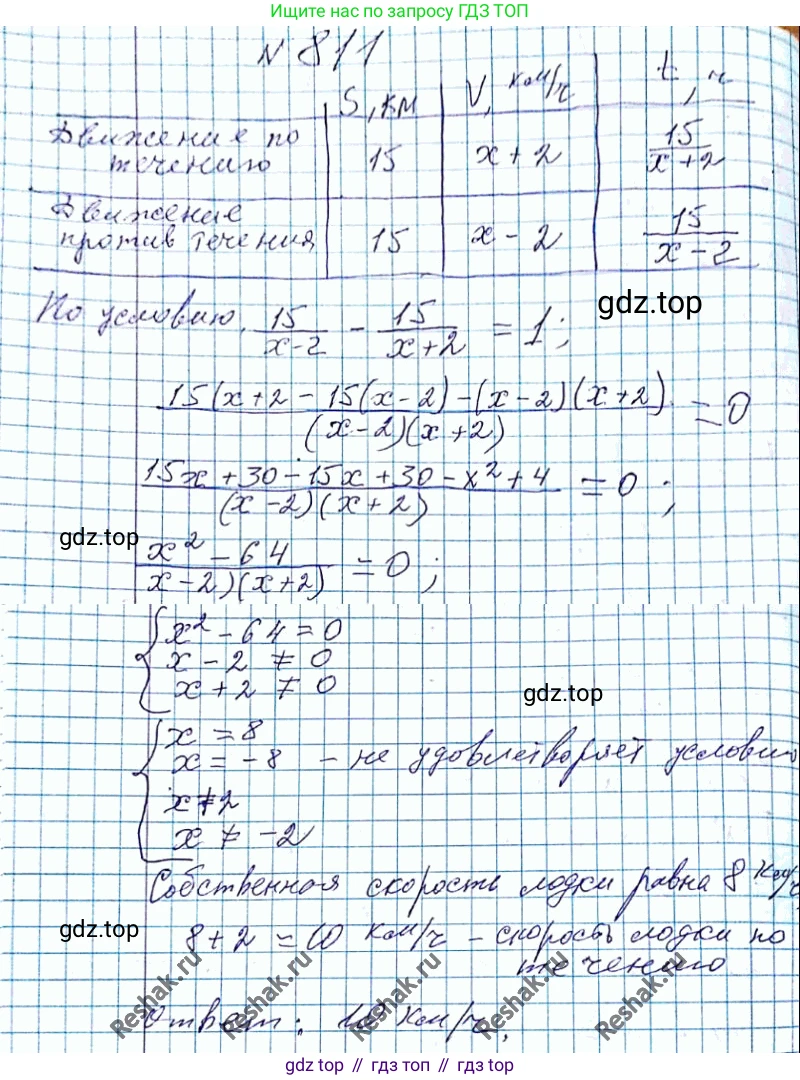 Ищите нас по запросу ГДЗ ТОП
N 811
S, км V, км/ч t, ч
Движение по течению 15 x + 2 15/(x + 2)
Движение против течения 15 x - 2 15/(x - 2)
gdz.top
По условию. 15/(x-2) - 15/(x+2) = 1;
(15(x+2 - 15(x-2) - (x-2)(x+2))/((x-2)(x+2)) = 0
(15x + 30 - 15x + 30 - x² + 4)/((x-2)(x+2)) = 0 ;
gdz.top
(x² - 64)/(x-2)(x+2)) = 0 ;
x² - 64 = 0
x - 2 ≠ 0
x + 2 ≠ 0
gdz.top
x = 8
x = -8 - не удовлетворяет условию
x ≠ 2
x ≠ -2
Собственная скорость лодки равна 8 км/ч
gdz.top
8 + 2 = 10 км/ч - скорость лодки по
течению
Reshak.ru Reshak.ru Reshak.ru Reshak.ru Reshak.ru
Ответ: 10 км/ч.
gdz.top // гдз топ // гдз.top